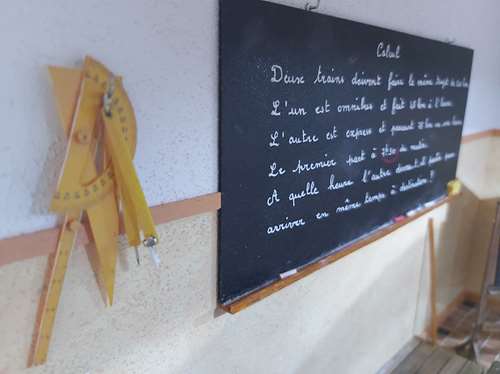 Calcul
Deux trains doivent faire le même trajet de
L'un est omnibus et fait à l'heure.
L'autre est express et parcourt km en une heure.
Le premier part à 7h30 du matin.
A quelle heure l'autre devra-t-il partir pour
arriver en même temps à destination ?